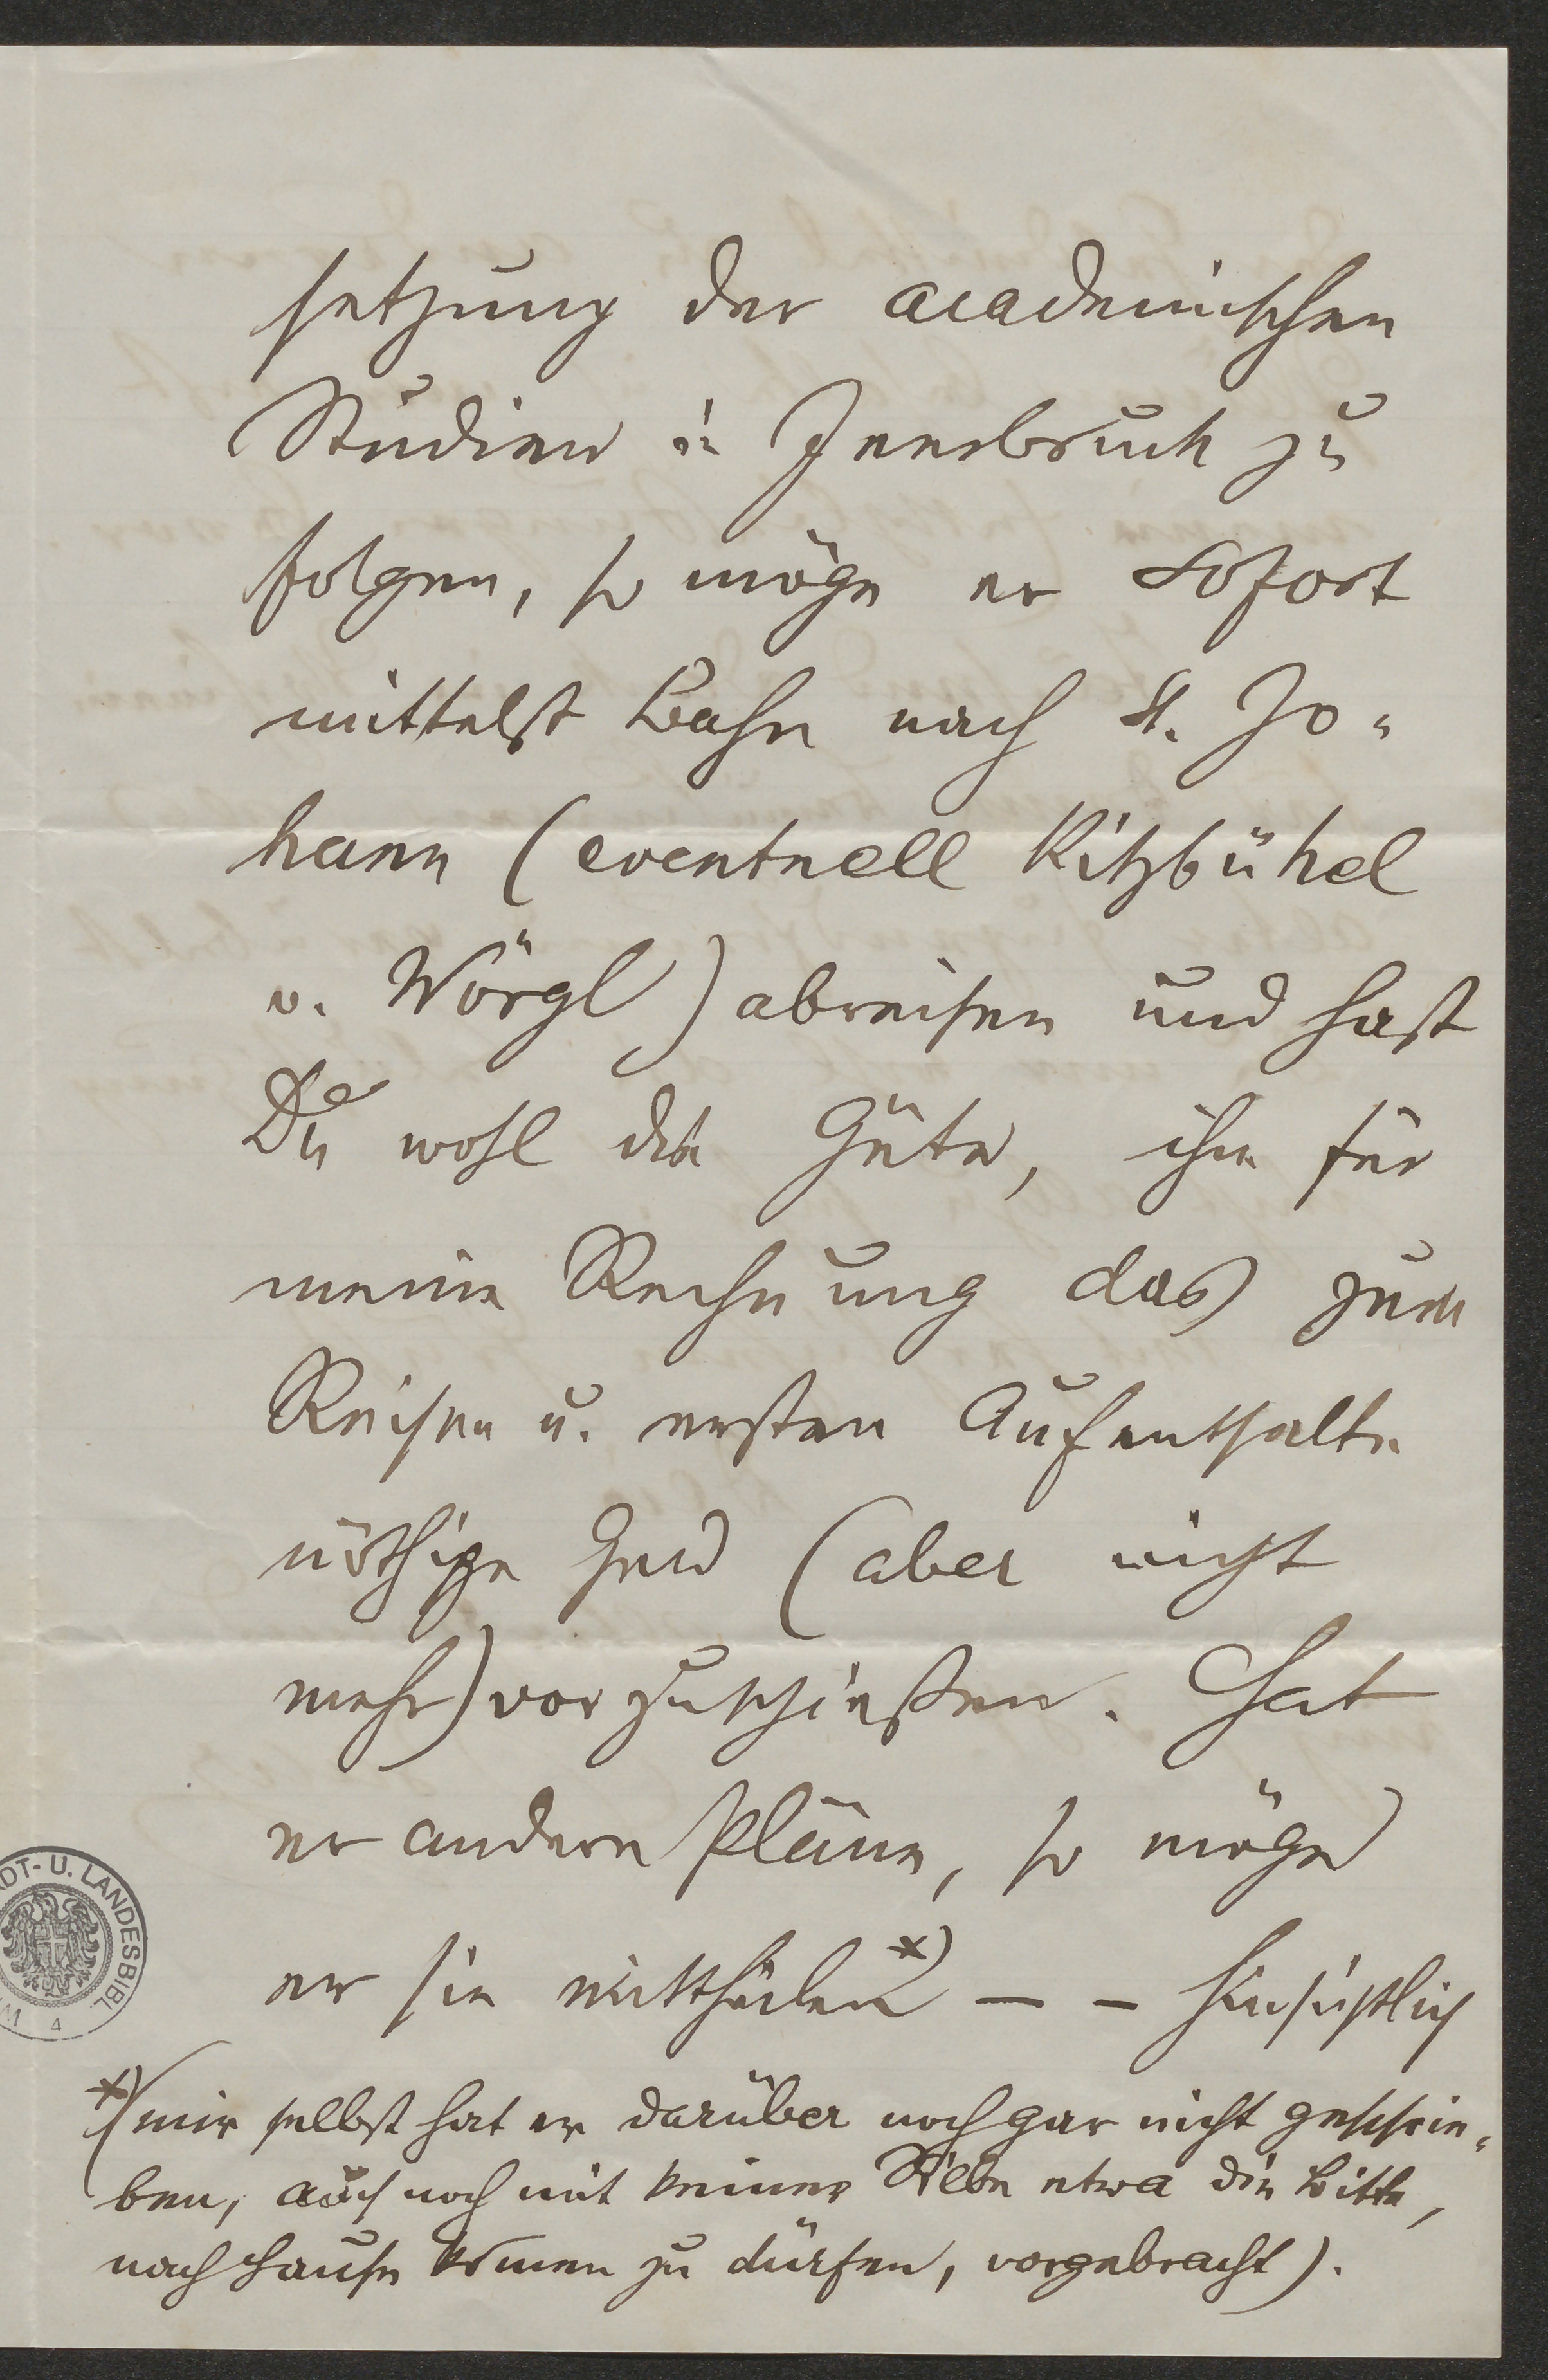 setzung der academischen
Studien in Innsbruck zu
folgen, so möge er sofort
mittelst Bahn nach St. Jo-
hann (eventuell Kitzbühel
o. Wörgl) abreisen und hast
Du wohl die Güte, ihm für
meine Rechnung das zum
Reisen u. ersten Aufenthalte
nöthige Geld (aber nicht
mehr) vorzuschießen. Hat
er andere Pläne, so möge
er sie mittheilen *) — — Hinsichtlich
*) (mir selbst hat er darüber noch gar nicht geschrie-
ben, auch noch mit keiner Silbe etwa die Bitte,
nach Hause komen zu dürfen, vorgebracht).
DT- U. LANDESBIBL